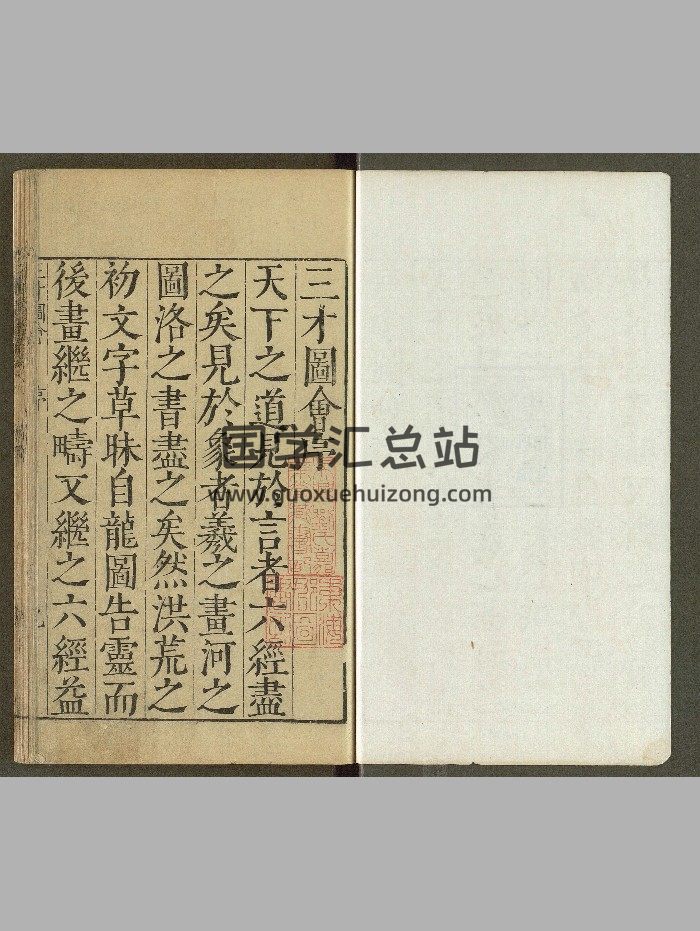 三才圖會序
天下之道見於言者六經盡
之矣見於象者羲之畫河之
圖洛之書盡之矣然洪荒之
初文字草昧自龍圖告靈而
後畫繼之疇又繼之六經益
三才圖會 序
国学汇总站
www.guoxuehuizong.com